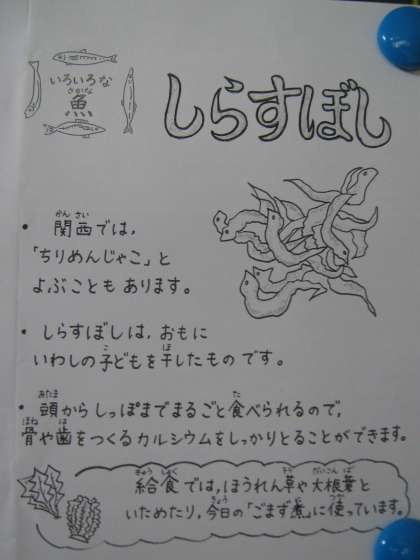 いろいろな
さかな
魚
しらすぼし
かんさい
・ 関西では,
「ちりめんじゃこ」と
よぶことも あります。
・ しらすぼしは, おもに
こ ほ
いわしの子どもを干したもの です。
あたま た
・ 頭からしっぽまでまるごと食べられるので,
ほね は
骨や歯をつくるカルシウムをしっかりとることができます。
きゅうしょく そう だいこんば
給食では, ほうれん草や大根葉と
きょう に つか
いためたり, 今日の「ごまず煮」に使っています。